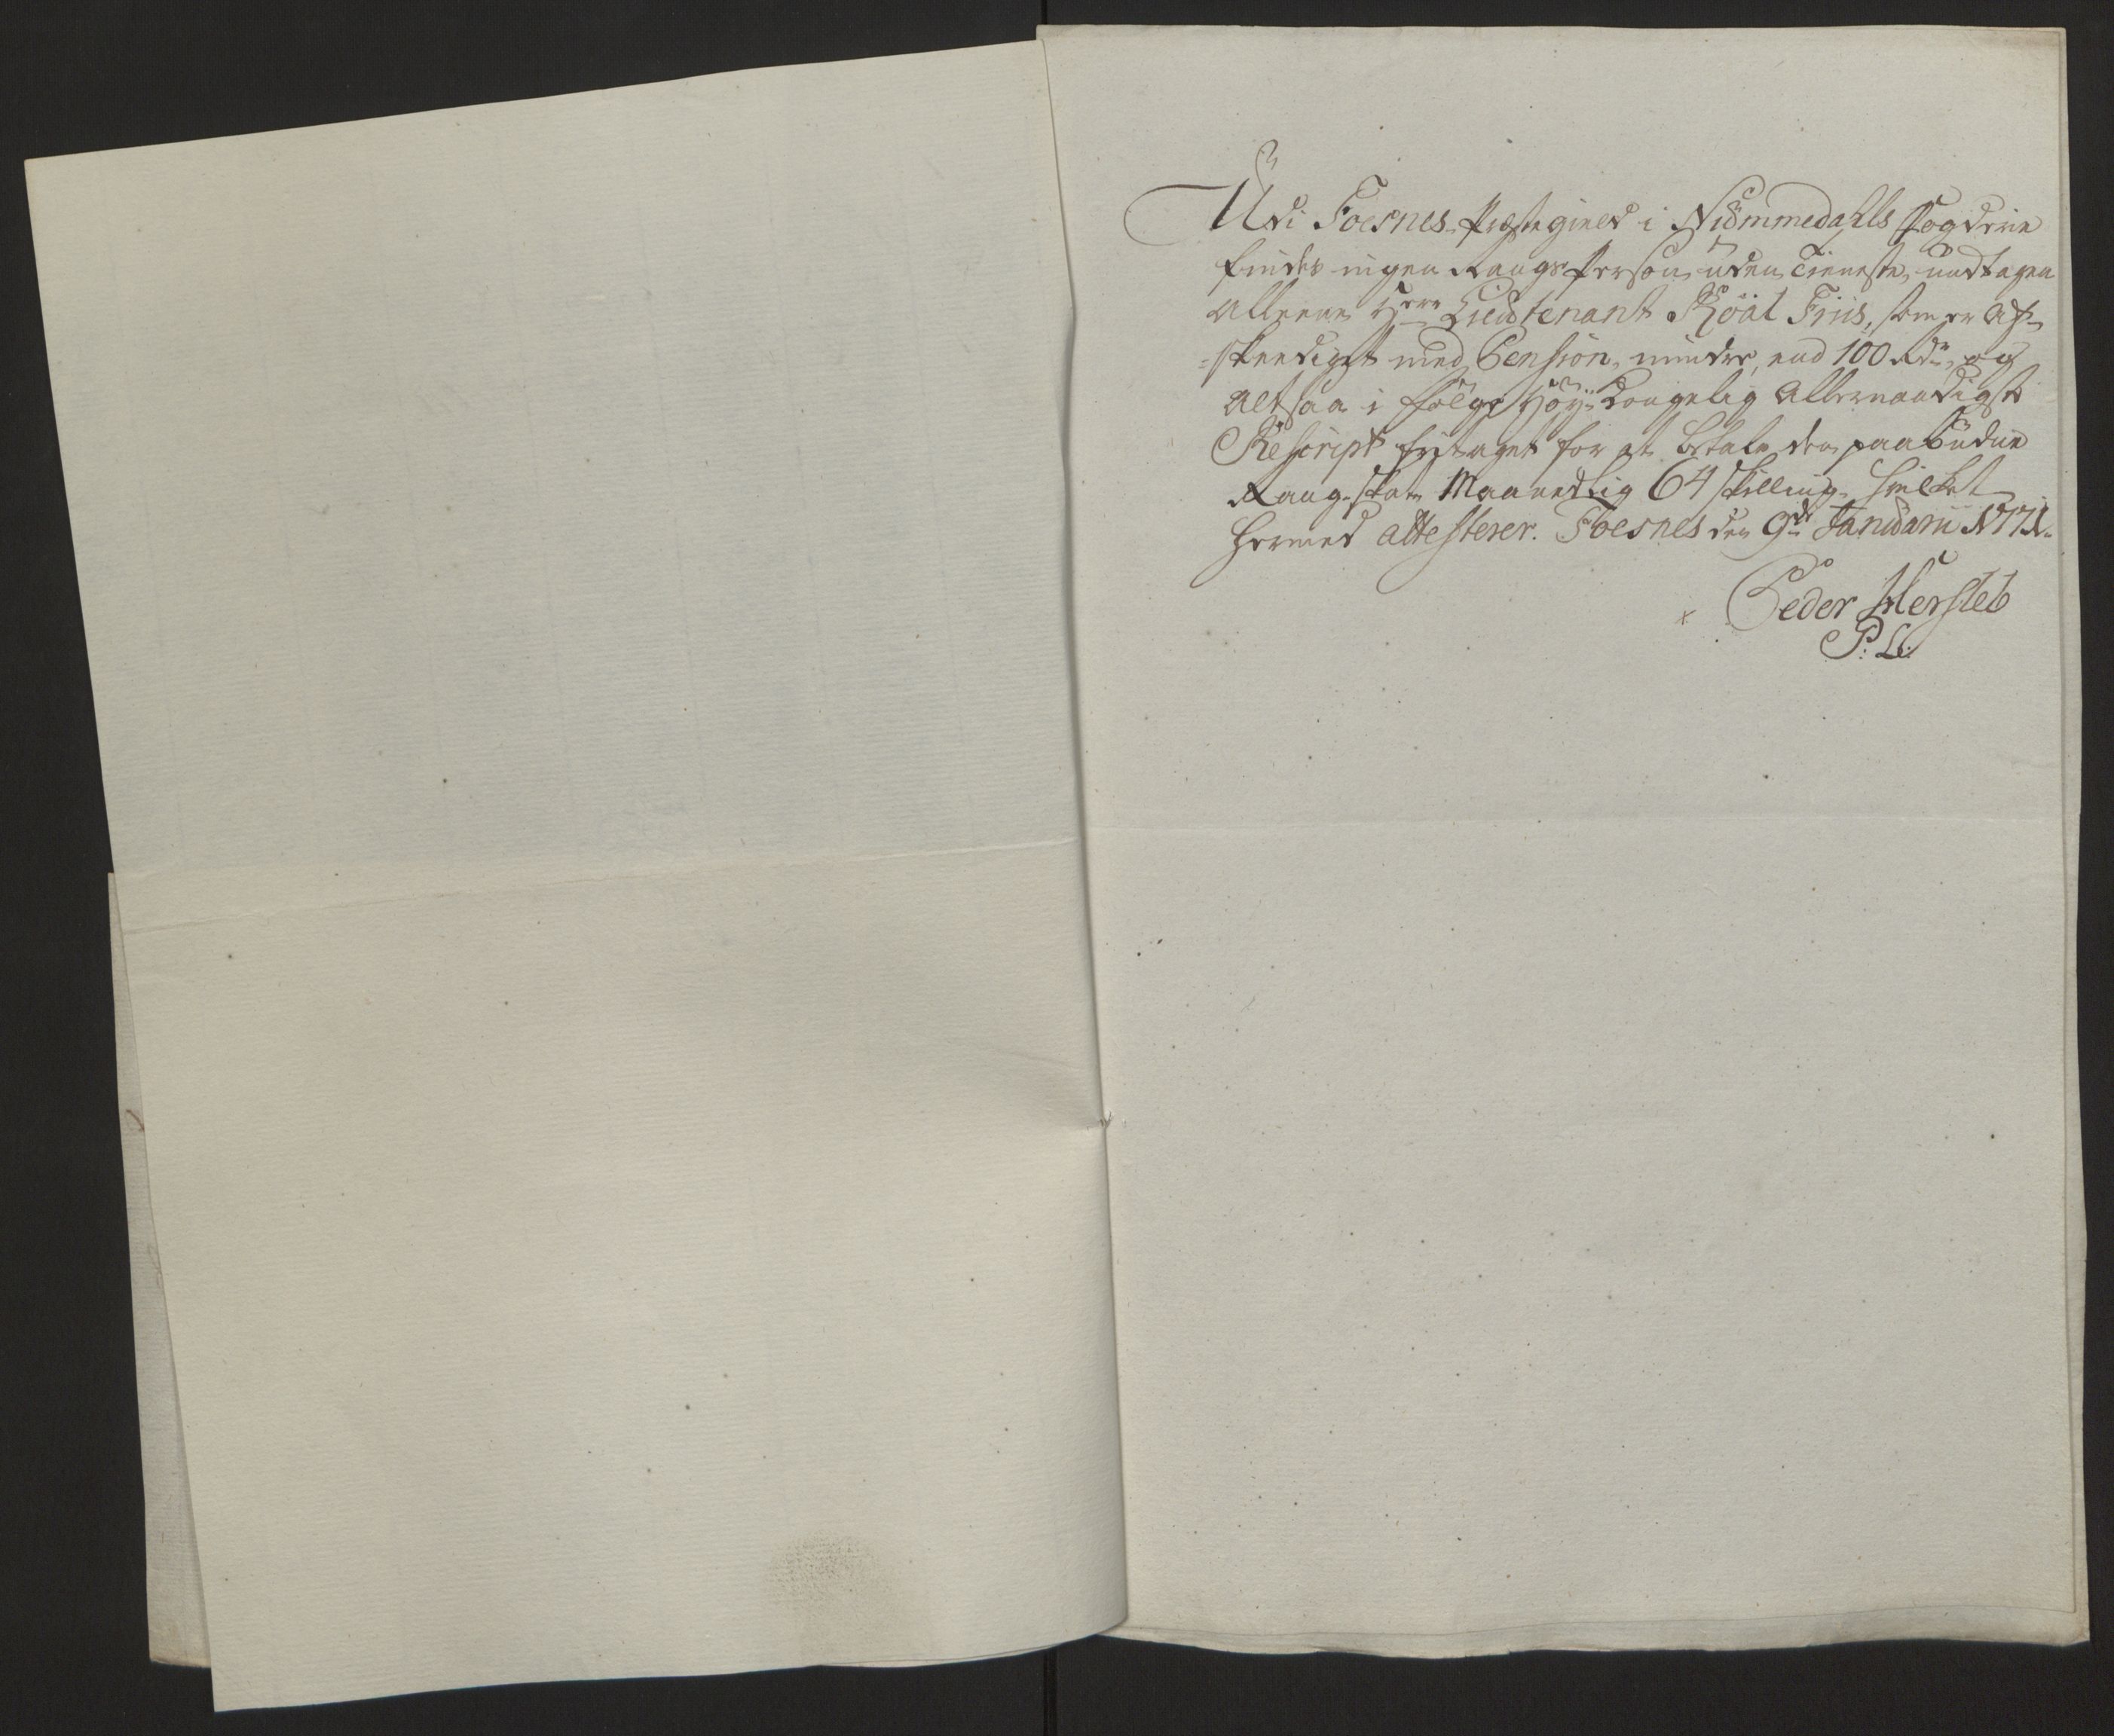 Udi Foesnes Præstegield i Nummedahls Fogderie
findes ingen Rangs Person uden Tieneste, undtagen
alleene Herr Lieutenant Røäl Friis, som er af-
skeediget med Pension, mindre, end 100 Rdr, og
altsaa i følge Høy-Kongelig allernaadigst
Rescript fritaget for at betale den paabudne
Rang-skat Maanedlig 64 skilling. hvilket
hermed attesterer. Foesnes den 9de Januarii 1771.
Peder Hersleb
P: L: